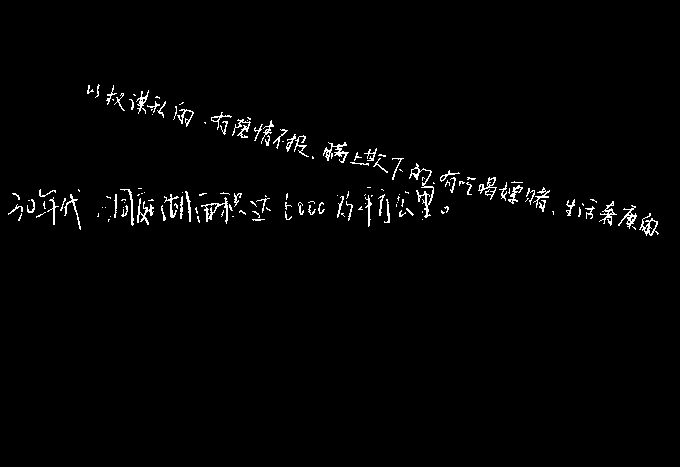 以权谋私的．有隐情不报、瞒上欺下的有吃喝嫖赌、生活奢靡的
30年代，洞庭湖面积达6000为平方公里。